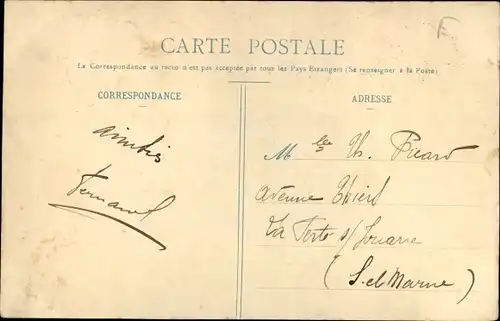 E
CARTE POSTALE
La Correspondance au recto n'est pas acceptée par tous les Pays Etrangers (Se renseigner à la Poste)
CORRESPONDANCE
ADRESSE
Amitiés
Fernand
Mlle Th. Picard
Avenue Thiers
La Ferté s/ Jouarre
(S. et Marne)